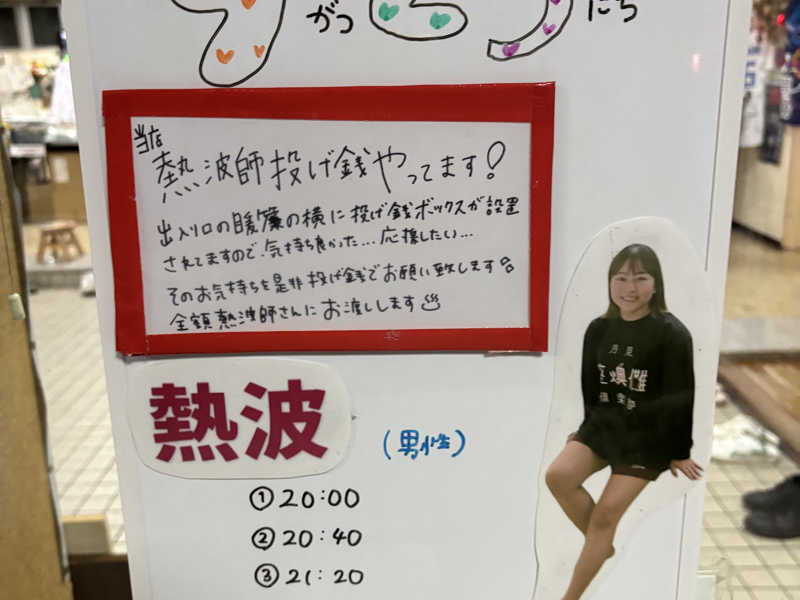 がつ
たち
当店
熱波師投げ銭やってます!
出入り口の暖簾の横に投げ銭ボックスが設置
されてますので、気持ち良かった...応援したい...
そのお気持ちを是非投げ銭でお願い致します
全額熱波師さんにお渡しします♨
熱波
(男性)
① 20:00
② 20:40
③ 21:20